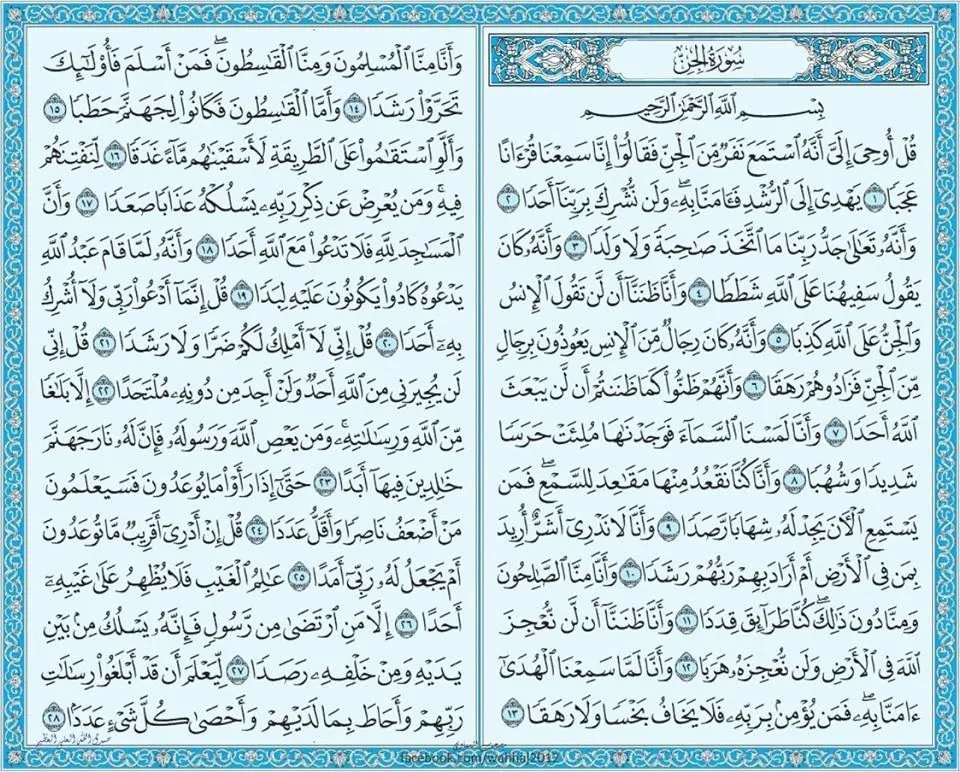 سُورَةُ الْجِنِّ
بِسْمِ اللَّهِ الرَّحْمَٰنِ الرَّحِيمِ
قُلْ أُوحِيَ إِلَيَّ أَنَّهُ ٱسْتَمَعَ نَفَرٌ مِّنَ ٱلْجِنِّ فَقَالُوٓا۟ إِنَّا سَمِعْنَا قُرْءَانًا
عَجَبًا ١ يَهْدِىٓ إِلَى ٱلرُّشْدِ فَـَٔامَنَّا بِهِۦ ۖ وَلَن نُّشْرِكَ بِرَبِّنَآ أَحَدًا ٢
وَأَنَّهُۥ تَعَٰلَىٰ جَدُّ رَبِّنَا مَا ٱتَّخَذَ صَٰحِبَةً وَلَا وَلَدًا ٣ وَأَنَّهُۥ كَانَ
يَقُولُ سَفِيهُنَا عَلَى ٱللَّهِ شَطَطًا ٤ وَأَنَّا ظَنَنَّآ أَن لَّن تَقُولَ ٱلْإِنسُ
وَٱلْجِنُّ عَلَى ٱللَّهِ كَذِبًا ٥ وَأَنَّهُۥ كَانَ رِجَالٌ مِّنَ ٱلْإِنسِ يَعُوذُونَ بِرِجَالٍ
مِّنَ ٱلْجِنِّ فَزَادُوهُمْ رَهَقًا ٦ وَأَنَّهُمْ ظَنُّوا۟ كَمَا ظَنَنتُمْ أَن لَّن يَبْعَثَ
ٱللَّهُ أَحَدًا ٧ وَأَنَّا لَمَسْنَا ٱلسَّمَآءَ فَوَجَدْنَٰهَا مُلِئَتْ حَرَسًا
شَدِيدًا وَشُهُبًا ٨ وَأَنَّا كُنَّا نَقْعُدُ مِنْهَا مَقَٰعِدَ لِلسَّمْعِ ۖ فَمَن
يَسْتَمِعِ ٱلْـَٔانَ يَجِدْ لَهُۥ شِهَابًا رَّصَدًا ٩ وَأَنَّا لَا نَدْرِىٓ أَشَرٌّ أُرِيدَ
بِمَن فِى ٱلْأَرْضِ أَمْ أَرَادَ بِهِمْ رَبُّهُمْ رَشَدًا ١٠ وَأَنَّا مِنَّا ٱلصَّٰلِحُونَ
وَمِنَّا دُونَ ذَٰلِكَ ۖ كُنَّا طَرَآئِقَ قِدَدًا ١١ وَأَنَّا ظَنَنَّآ أَن لَّن نُّعْجِزَ
ٱللَّهَ فِى ٱلْأَرْضِ وَلَن نُّعْجِزَهُۥ هَرَبًا ١٢ وَأَنَّا لَمَّا سَمِعْنَا ٱلْهُدَىٰٓ
ءَامَنَّا بِهِۦ ۖ فَمَن يُؤْمِنۢ بِرَبِّهِۦ فَلَا يَخَافُ بَخْسًا وَلَا رَهَقًا ١٣
وَأَنَّا مِنَّا ٱلْمُسْلِمُونَ وَمِنَّا ٱلْقَٰسِطُونَ ۖ فَمَنْ أَسْلَمَ فَأُو۟لَٰٓئِكَ
تَحَرَّوْا۟ رَشَدًا ١٤ وَأَمَّا ٱلْقَٰسِطُونَ فَكَانُوا۟ لِجَهَنَّمَ حَطَبًا ١٥
وَأَلَّوِ ٱسْتَقَٰمُوا۟ عَلَى ٱلطَّرِيقَةِ لَأَسْقَيْنَٰهُم مَّآءً غَدَقًا ١٦ لِّنَفْتِنَهُمْ
فِيهِ ۚ وَمَن يُعْرِضْ عَن ذِكْرِ رَبِّهِۦ يَسْلُكْهُ عَذَابًا صَعَدًا ١٧ وَأَنَّ
ٱلْمَسَٰجِدَ لِلَّهِ فَلَا تَدْعُوا۟ مَعَ ٱللَّهِ أَحَدًا ١٨ وَأَنَّهُۥ لَمَّا قَامَ عَبْدُ ٱللَّهِ
يَدْعُوهُ كَادُوا۟ يَكُونُونَ عَلَيْهِ لِبَدًا ١٩ قُلْ إِنَّمَآ أَدْعُوا۟ رَبِّى وَلَآ أُشْرِكُ
بِهِۦٓ أَحَدًا ٢٠ قُلْ إِنِّى لَآ أَمْلِكُ لَكُمْ ضَرًّا وَلَا رَشَدًا ٢١ قُلْ إِنِّى
لَن يُجِيرَنِى مِنَ ٱللَّهِ أَحَدٌ وَلَنْ أَجِدَ مِن دُونِهِۦ مُلْتَحَدًا ٢٢ إِلَّا بَلَٰغًا
مِّنَ ٱللَّهِ وَرِسَٰلَٰتِهِۦ ۚ وَمَن يَعْصِ ٱللَّهَ وَرَسُولَهُۥ فَإِنَّ لَهُۥ نَارَ جَهَنَّمَ
خَٰلِدِينَ فِيهَآ أَبَدًا ٢٣ حَتَّىٰٓ إِذَا رَأَوْا۟ مَا يُوعَدُونَ فَسَيَعْلَمُونَ
مَنْ أَضْعَفُ نَاصِرًا وَأَقَلُّ عَدَدًا ٢٤ قُلْ إِنْ أَدْرِىٓ أَقَرِيبٌ مَّا تُوعَدُونَ
أَمْ يَجْعَلُ لَهُۥ رَبِّىٓ أَمَدًا ٢٥ عَٰلِمُ ٱلْغَيْبِ فَلَا يُظْهِرُ عَلَىٰ غَيْبِهِۦٓ
أَحَدًا ٢٦ إِلَّا مَنِ ٱرْتَضَىٰ مِن رَّسُولٍ فَإِنَّهُۥ يَسْلُكُ مِنۢ بَيْنِ
يَدَيْهِ وَمِنْ خَلْفِهِۦ رَصَدًا ٢٧ لِّيَعْلَمَ أَن قَدْ أَبْلَغُوا۟ رِسَٰلَٰتِ
رَبِّهِمْ وَأَحَاطَ بِمَا لَدَيْهِمْ وَأَحْصَىٰ كُلَّ شَىْءٍ عَدَدًۢا ٢٨
صدق الله العلي العظيم
facebook.com/wahhaj2012